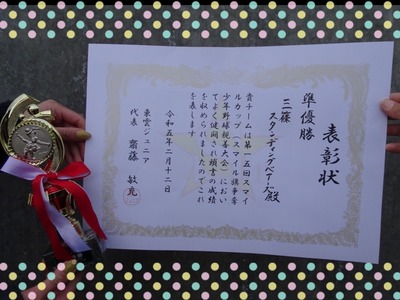 表彰状
準優勝
三篠
スタンディングベアーズ殿
貴チームは第一五回スマイ
ルカップ(スマイル旗争奪
少年野球親善大会)におい
てよく健闘され頭書の成績
を収められましたのでこれ
を表します
令和五年二月十二日
東雲ジュニア
代表 齋藤 敏克